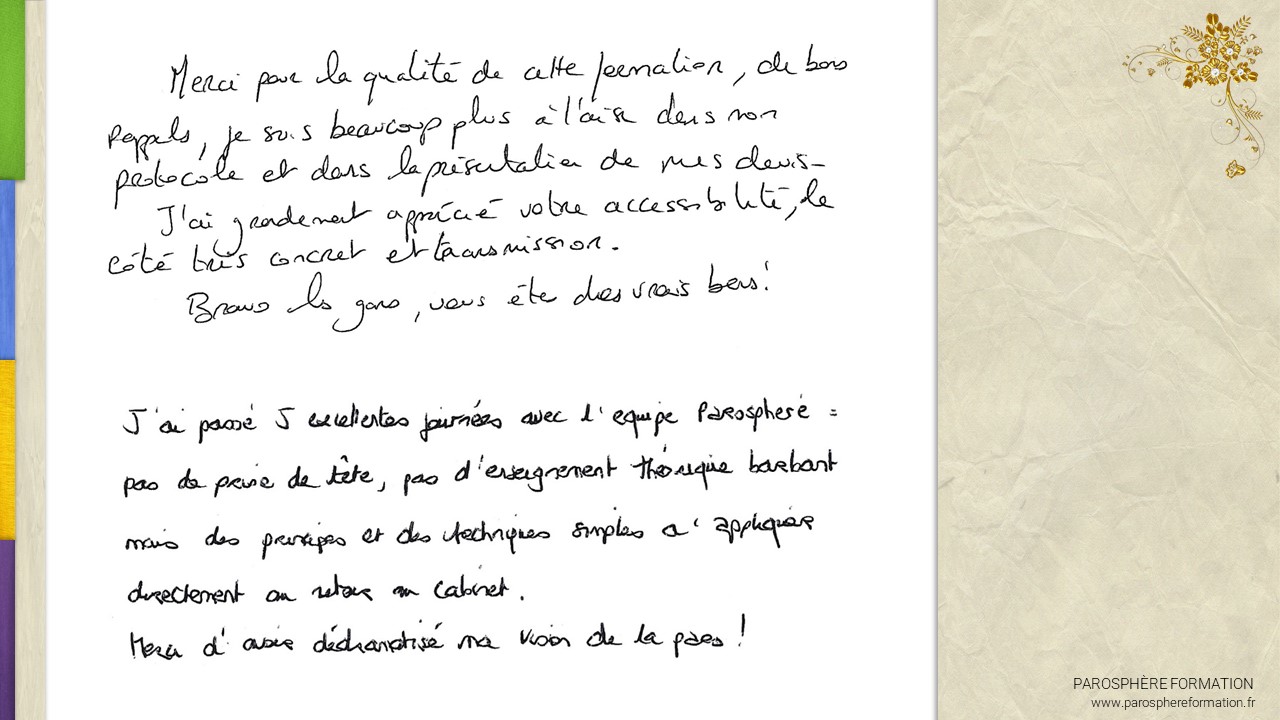 Merci pour la qualité de cette formation, de bons
rappels, je suis beaucoup plus à l'aise dans mon
protocole et dans la présentation de mes devis-
J'ai grandement apprécié votre accessibilité, le
côté très concret et transmission.
Bravo les gars, vous êtes des vrais bons!
J'ai passé 5 excellentes journées avec l'equipe Parosphere :
pas de prise de tête, pas d'enseignement théorique barbant
mais des principes et des techniques simples a' appliquer
directement au retour au cabinet.
Merci d'avoir dédramatisé ma vision de la paro !
PAROSPHÈRE FORMATION
www.parosphereformation.fr